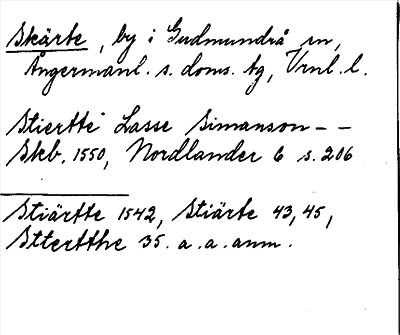 Skärte, by i Gudmundrå sn,
Ångermanl. s. doms. tg, Vrnl. l.
Stiertte Lasse Simanson - -
Skb. 1550, Nordlander 6 s. 206
Stiärtte 1542, Stiärte 43, 45,
Sttertthe 35. a. a. anm.